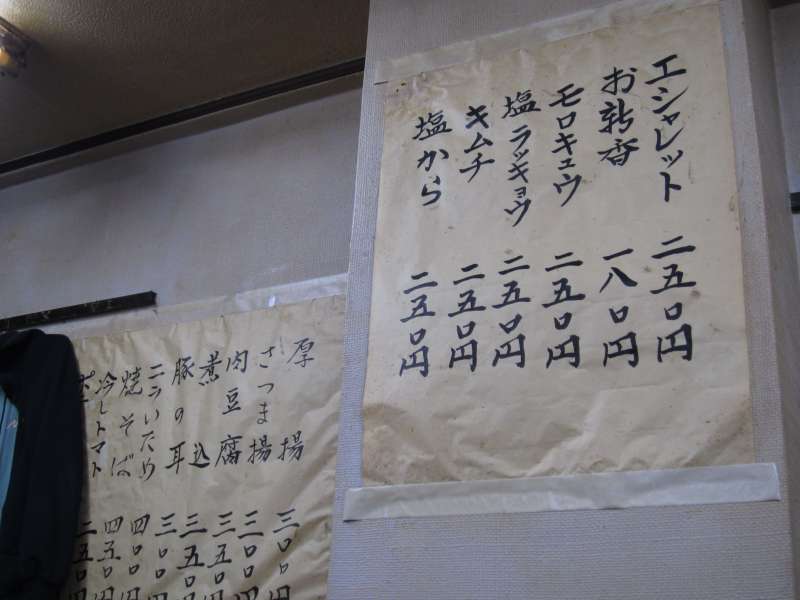 エシャレット 二五〇円
お新香 一八〇円
モロキュウ 二五〇円
塩ラッキョウ 二五〇円
キムチ 二五〇円
塩から 二五〇円
厚揚 三〇〇円
さつま揚 三〇〇円
肉豆腐 三五〇円
煮込 三五〇円
豚の耳 三〇〇円
ニラいため 四〇〇円
焼そば 四五〇円
冷しトマト 二五〇円